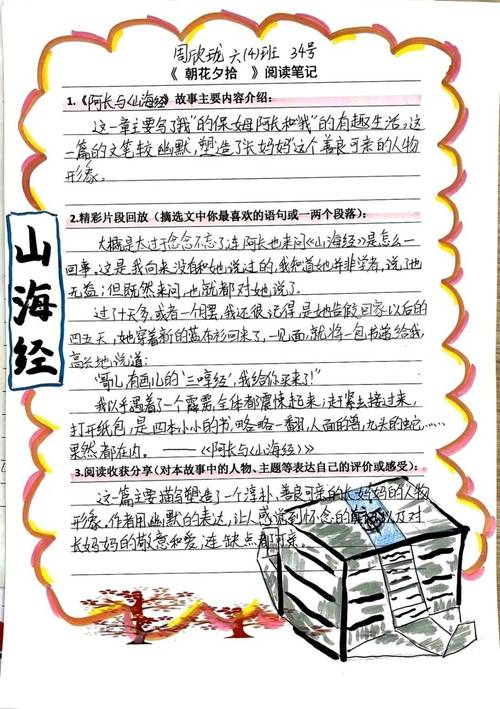 周欣珑 六(4)班 34号
《 朝花夕拾 》阅读笔记
1.《阿长与《山海经》故事主要内容介绍：
这一章主要写了"我"的保姆阿长和"我"的有趣生活。这
一篇的文笔较幽默，塑造了长妈妈这个善良可亲的人物
形象。
山海经
2.精彩片段回放（摘选文中你最喜欢的语句或一两个段落）：
大概是太过于念念不忘了，连阿长也来问《山海经》是怎么一
回事。这是我向来没有和她说过的，我知道她并非学者，说了也
无益；但既然来问，也就都对她说了。
过了十天多，或者一个月罢，我还很记得，是她告假回家以后的
四五天，她穿着新的蓝布衫回来了，一见面，就将一包书递给我，
高兴地说道：
"哥儿，有画儿的'三哼经'，我给你买来了！"
我似乎遇着了一个霹雳，全体都震悚起来；赶紧去接过来，
打开纸包，是四本小小的书，略略一翻，人面的兽，九头的蛇……
果然都在内。 ——《阿长与《山海经》》
3.阅读收获分享（对本故事中的人物、主题等表达自己的评价或感受）：
这一篇主要描写塑造了一个淳朴、善良可亲的长妈妈的人物
形象。作者用幽默的表达，让人感觉到怀念的 以及对
长妈妈的敬意和爱，连缺点都可亲。